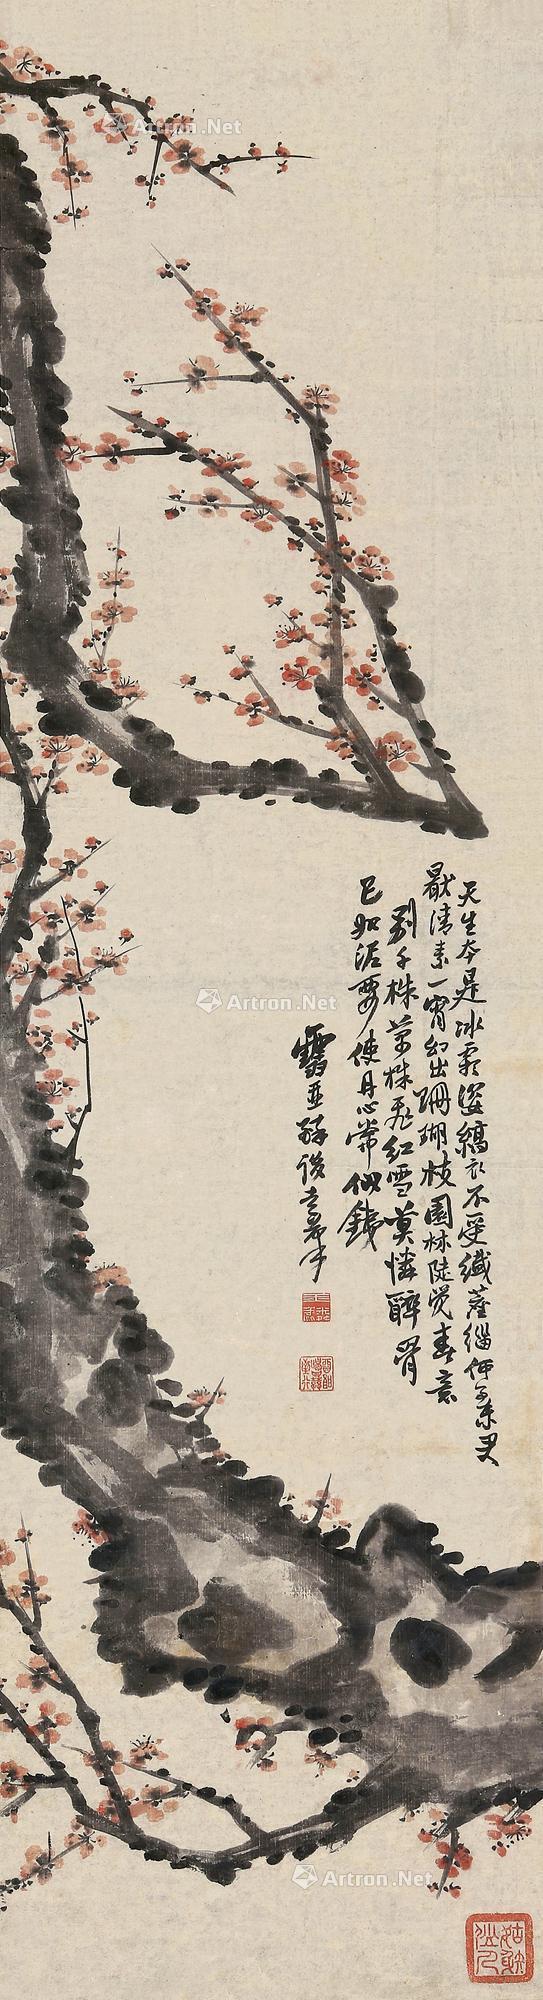 Artron.Net
天生本是冰霜姿縞衣不受纖塵緇東君
厭清素一宵幻出珊瑚枝園林陡覺春意
別千株萬株飛紅雪莫憐醉骨
已如泥要使丹心常似鐵
Artron.Net
Artron.Net